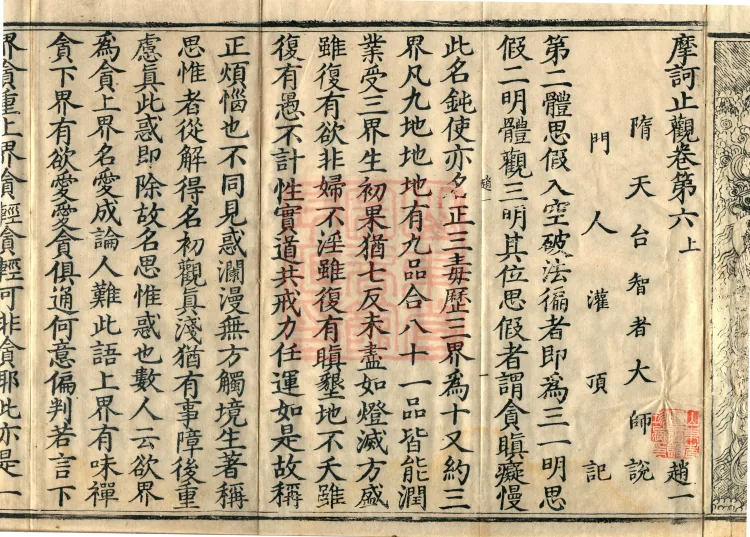 摩訶止觀卷第六上
隋天台智者大師說 趙一
門人灌頂記
第二體思假入空破法徧者即為三一明思
假二明體觀三明其位思假者謂貪瞋癡慢
此名鈍使亦名正三毒歷三界為十又約三
界凡九地地地有九品合八十一品皆能潤
業受三界生初果猶七反未盡如燈滅方盛
雖復有欲非婦不淫雖復有瞋墾地不夭雖
復有愚不計性實道共戒力任運如是故稱
正煩惱也不同見惑瀾漫無方觸境生著稱
思惟者從解得名初觀真淺猶有事障後重
慮眞此惑即除故名思惟惑也數人云欲界
為貪上界名愛成論人難此語上界有味禪
貪下界有欲愛愛貪俱通何意偏判若言下
界貪重上界貪輕貪輕可非貪耶此亦是一
趙一